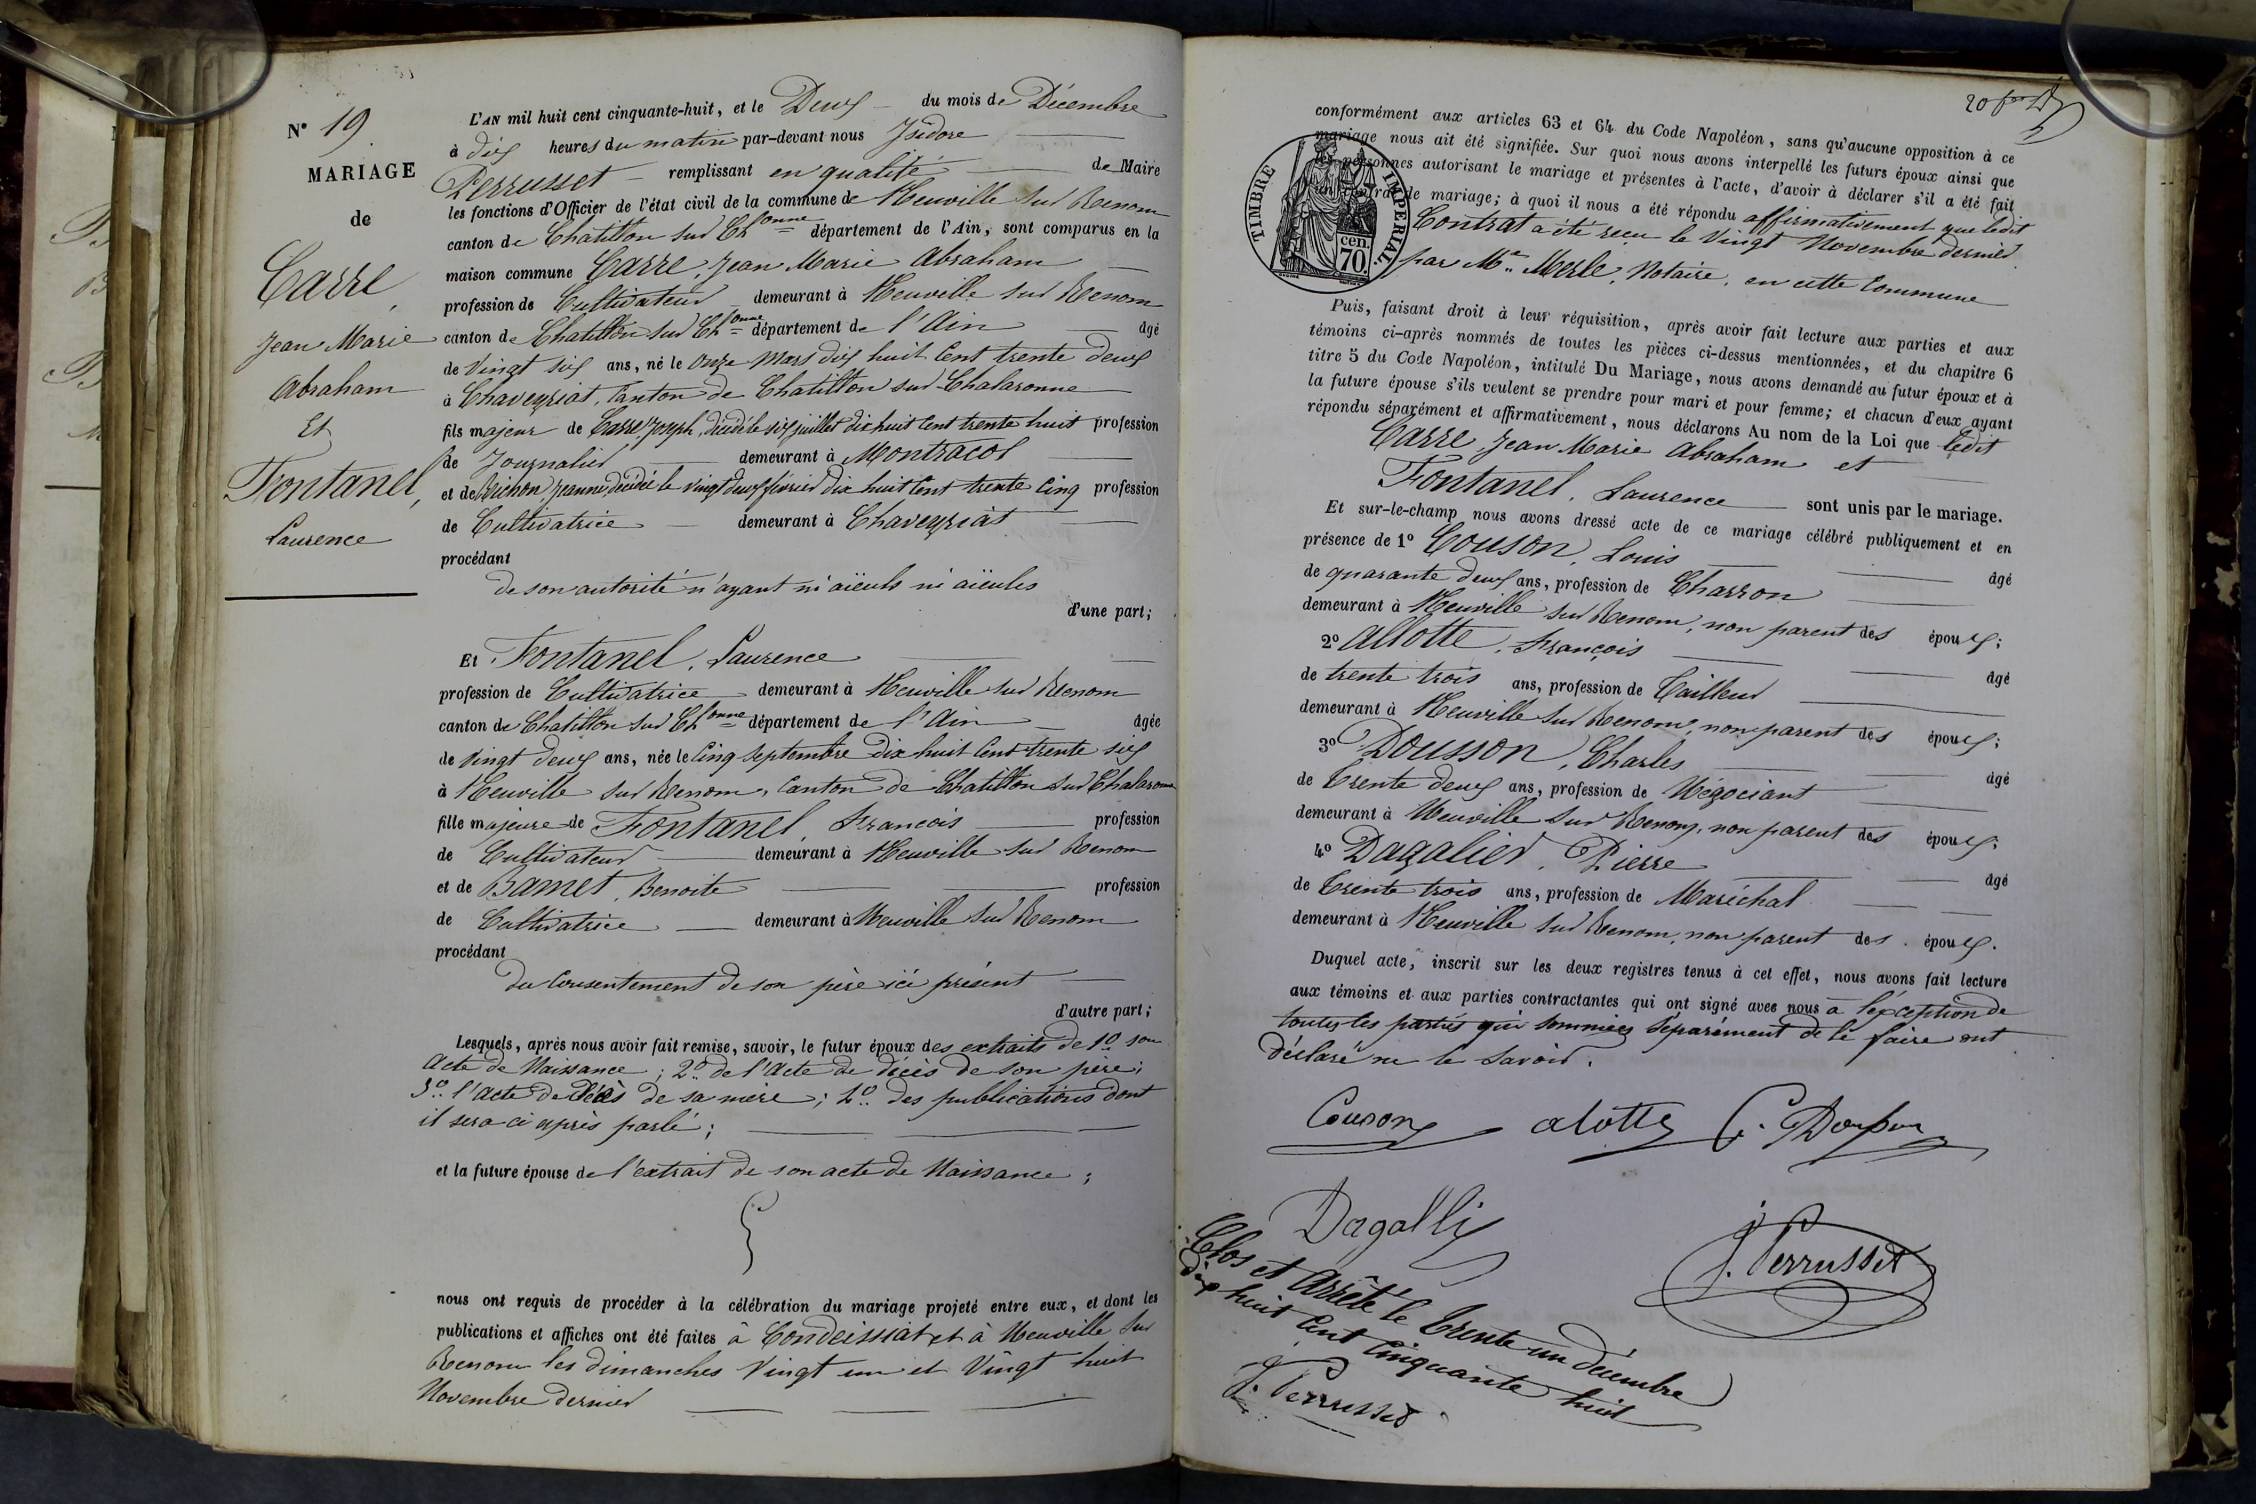 Nº 19
MARIAGE
de
Carré,
Jean Marie
Abraham
Et
Fontanel,
Laurence
L'AN mil huit cent cinquante-huit, et le Deux du mois de Décembre
à dix heures du matin par-devant nous Isidore
Perrusset remplissant en qualité de Maire
les fonctions d'Officier de l'état civil de la commune de Neuville sur Renom
canton de Chatillon sur Chonne département de l'Ain, sont comparus en la
maison commune Carré, Jean Marie Abraham
profession de Cultivateur demeurant à Neuville sur Renom
canton de Chatillon sur Chonne département de l'Ain âgé
de vingt six ans, né le onze Mars dix huit Cent trente deux
à Chaveyriat, Canton de Chatillon sur Chalaronne
fils majeur de Carré Joseph, décédé le six juillet dix huit Cent trente huit profession
de Journalier demeurant à Montracol
et de Bichon, Jeanne, décédée le vingt deux février dix huit Cent trente Cinq profession
de Cultivatrice demeurant à Chaveyriàt
procédant
de son autorité n'ayant ni aïeuls ni aïeules
d'une part;
Et Fontanel, Laurence
profession de Cultivatrice demeurant à Neuville sur Renom
canton de Chatillon sur Chonne département de l'Ain âgée
de vingt deux ans, née le Cinq Septembre dix huit Cent trente six
à Neuville sur Renom, Canton de Chatillon sur Chalaronne
fille majeure de Fontanel, François profession
de Cultivateur demeurant à Neuville sur Renom
et de Bamet, Benoite profession
de Cultivatrice demeurant à Neuville sur Renom
procédant
du Consentement de son père ici présent
d'autre part;
Lesquels, après nous avoir fait remise, savoir, le futur époux des extraits de 1º son
Acte de Naissance; 2º de l'Acte de décès de son père;
3º l'acte de décès de sa mère; 4º des publications dont
il sera ci après parlé;
et la future épouse de l'extrait de son acte de Naissance;
nous ont requis de procéder à la célébration du mariage projeté entre eux, et dont les
publications et affiches ont été faites à Condeissiat et à Neuville sur
Renom les dimanches Vingt un et Vingt huit
Novembre dernier
conformément aux articles 63 et 64 du Code Napoléon, sans qu'aucune opposition à ce
mariage nous ait été signifiée. Sur quoi nous avons interpellé les futurs époux ainsi que
les personnes autorisant le mariage et présentes à l'acte, d'avoir à déclarer s'il a été fait
un contrat de mariage; à quoi il nous a été répondu affirmativement que ledit
Contrat a été reçu le Vingt Novembre dernier
par Me Merle, Notaire, en cette Commune
TIMBRE IMPÉRIAL.
cen.
70.
Puis, faisant droit à leur réquisition, après avoir fait lecture aux parties et aux
témoins ci-après nommés de toutes les pièces ci-dessus mentionnées, et du chapitre 6
titre 5 du Code Napoléon, intitulé Du Mariage, nous avons demandé au futur époux et à
la future épouse s'ils veulent se prendre pour mari et pour femme; et chacun d'eux ayant
répondu séparément et affirmativement, nous déclarons Au nom de la Loi que ledit
Carré Jean Marie Abraham et
Fontanel, Laurence sont unis par le mariage.
Et sur-le-champ nous avons dressé acte de ce mariage célébré publiquement et en
présence de 1º Couson, Louis âgé
de quarante deux ans, profession de Charron
demeurant à Neuville sur Renom, non parent des époux;
2º Allotte, François âgé
de trente trois ans, profession de Tailleur
demeurant à Neuville sur Renom, non parent des époux;
3º Dousson, Charles âgé
de Trente deux ans, profession de Négociant
demeurant à Neuville sur Renom, non parent des époux;
4º Dagalier, Pierre âgé
de Trente trois ans, profession de Maréchal
demeurant à Neuville sur Renom, non parent des époux.
Duquel acte, inscrit sur les deux registres tenus à cet effet, nous avons fait lecture
aux témoins et aux parties contractantes qui ont signé avec nous à l'exception de
toutes les parties qui sommées séparément de le faire ont
déclaré ne le savoir.
Couson alotte C. Dousson
Dagallier
J. Perrusset
Clos et Arrêté le Trente un décembre
dix huit Cent Cinquante huit
J. Perrusset